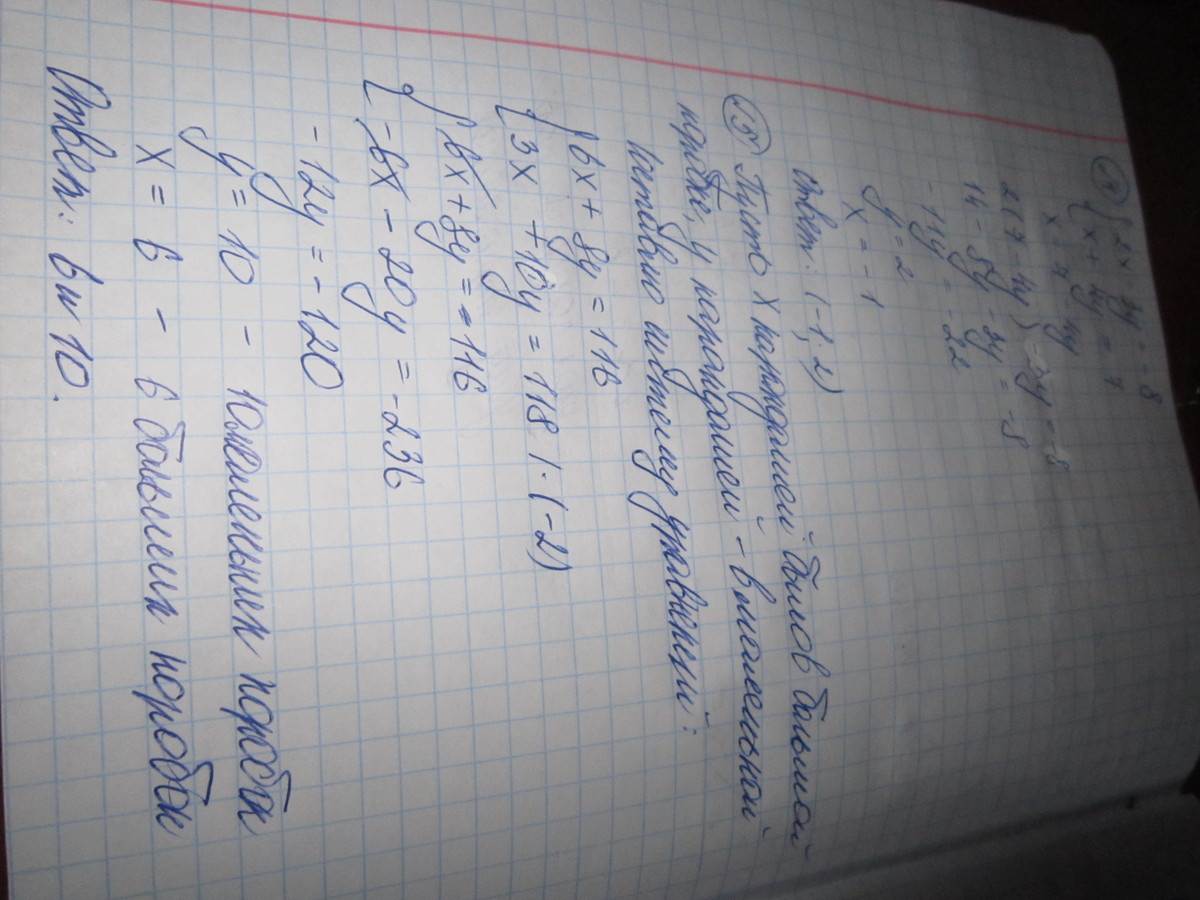 ④ { 2x - 3y = -8
{ x + 4y = 7
x = 7 - 4y
2(7 - 4y) - 3y = -8
14 - 8y - 3y = -8
-11y = -22
y = 2
x = -1
Ответ: (-1; 2)
⑤ Пусть x карандашей было в большой
коробке, y карандашей - в маленькой.
систему уравнений:
{ 6x + 8y = 116
{ 3x + 10y = 118 | · (-2)
{ 6x + 8y = 116
{ -6x - 20y = -236
-12y = -120
y = 10 - 10 маленьких коробок
x = 6 - 6 больших коробок
Ответ: 6 и 10.